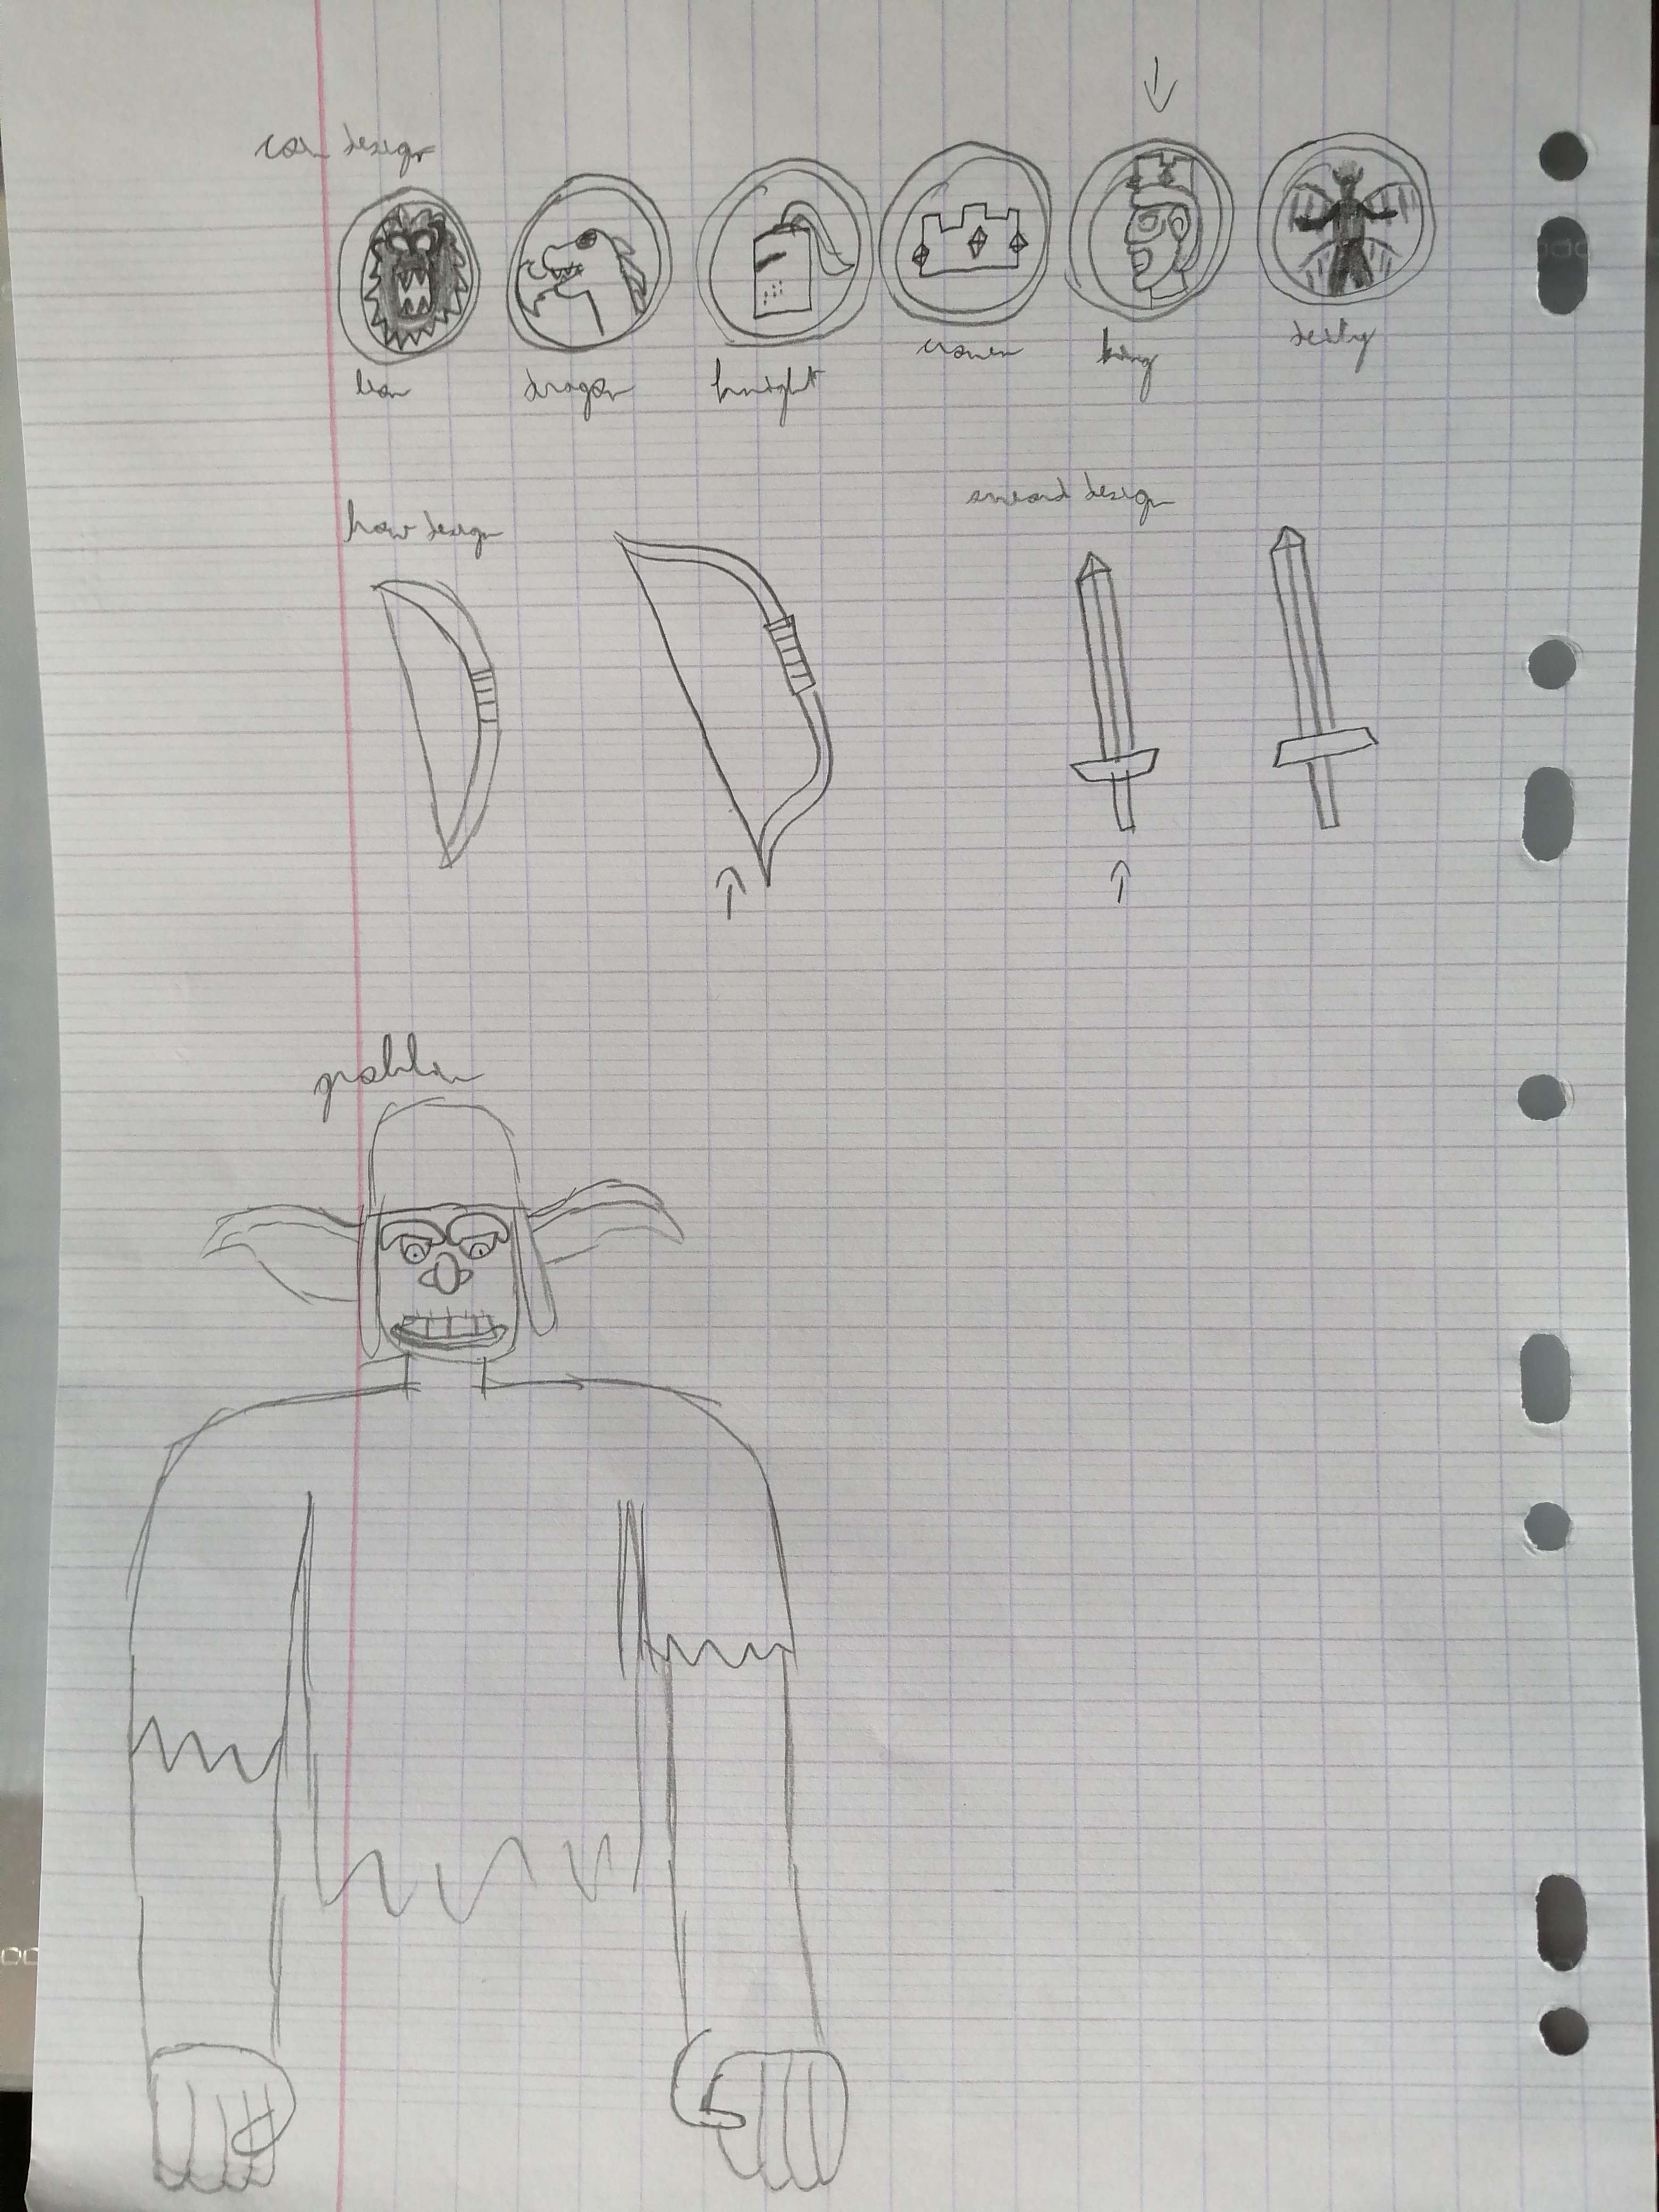 coin design
lion
dragon
knight
crown
king
deity
bow design
sword design
goblin